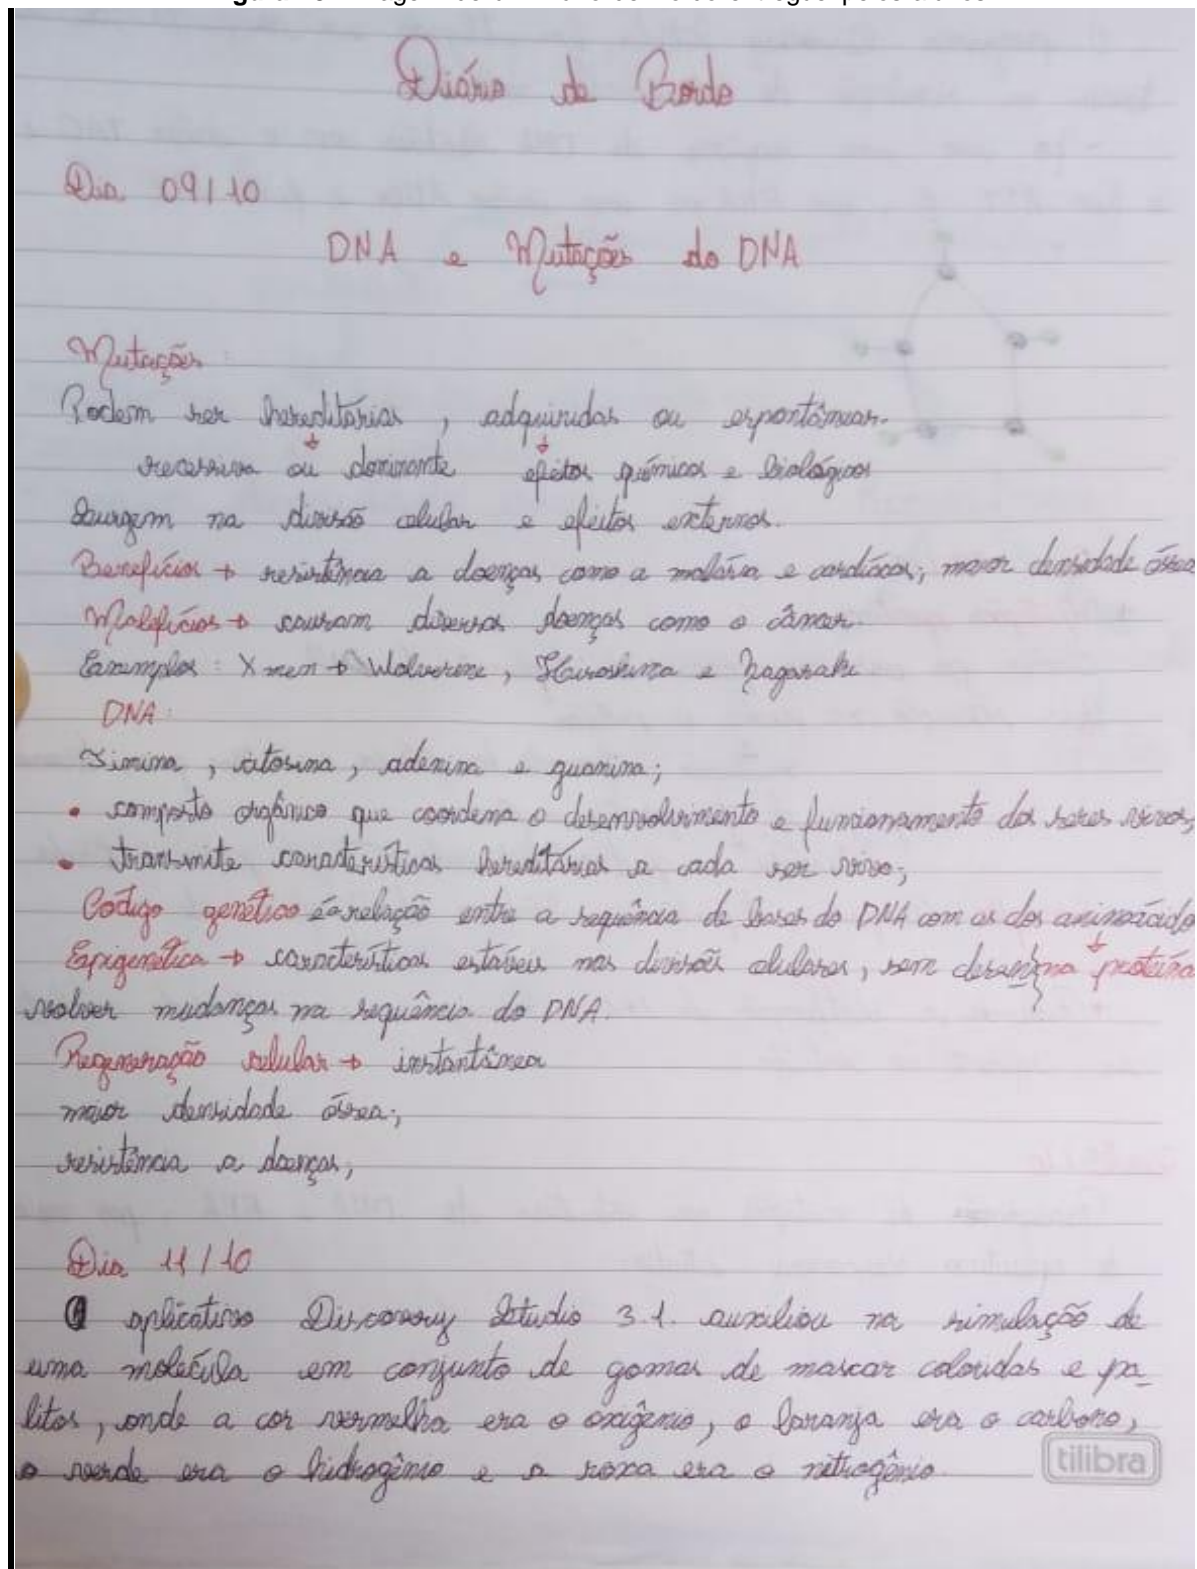 Diário de Bordo
Dia 09/10
DNA e Mutações do DNA
Mutações:
Podem ser hereditárias, adquiridas ou espontâneas.
recessiva ou dominante efeitos químicos e biológicos
Surgem na divisão celular e efeitos externos.
Benefícios → resistência a doenças como a malária e cardíacas; maior densidade óssea
Malefícios → causam diversas doenças como o câncer.
Exemplos: X men → Wolverine, Hiroshima e Nagasaki
DNA:
Timina, citosina, adenina e guanina;
• composto orgânico que coordena o desenvolvimento e funcionamento dos seres vivos;
• transmite características hereditárias a cada ser vivo;
Código genético é a relação entre a sequência de bases do DNA com as dos aminoácido
Epigenética → características estáveis nas divisões celulares, sem desen na proteína
volver mudanças na sequência do DNA.
Regeneração celular → instantânea
maior densidade óssea;
resistência a doenças;
Dia 11/10
O aplicativo Discovery Studio 3.1. auxiliou na simulação de
uma molécula em conjunto de gomas de mascar coloridas e pa-
litos, onde a cor vermelha era o oxigênio, o laranja era o carbono,
o verde era o hidrogênio e a roxa era o nitrogênio.
tilibra